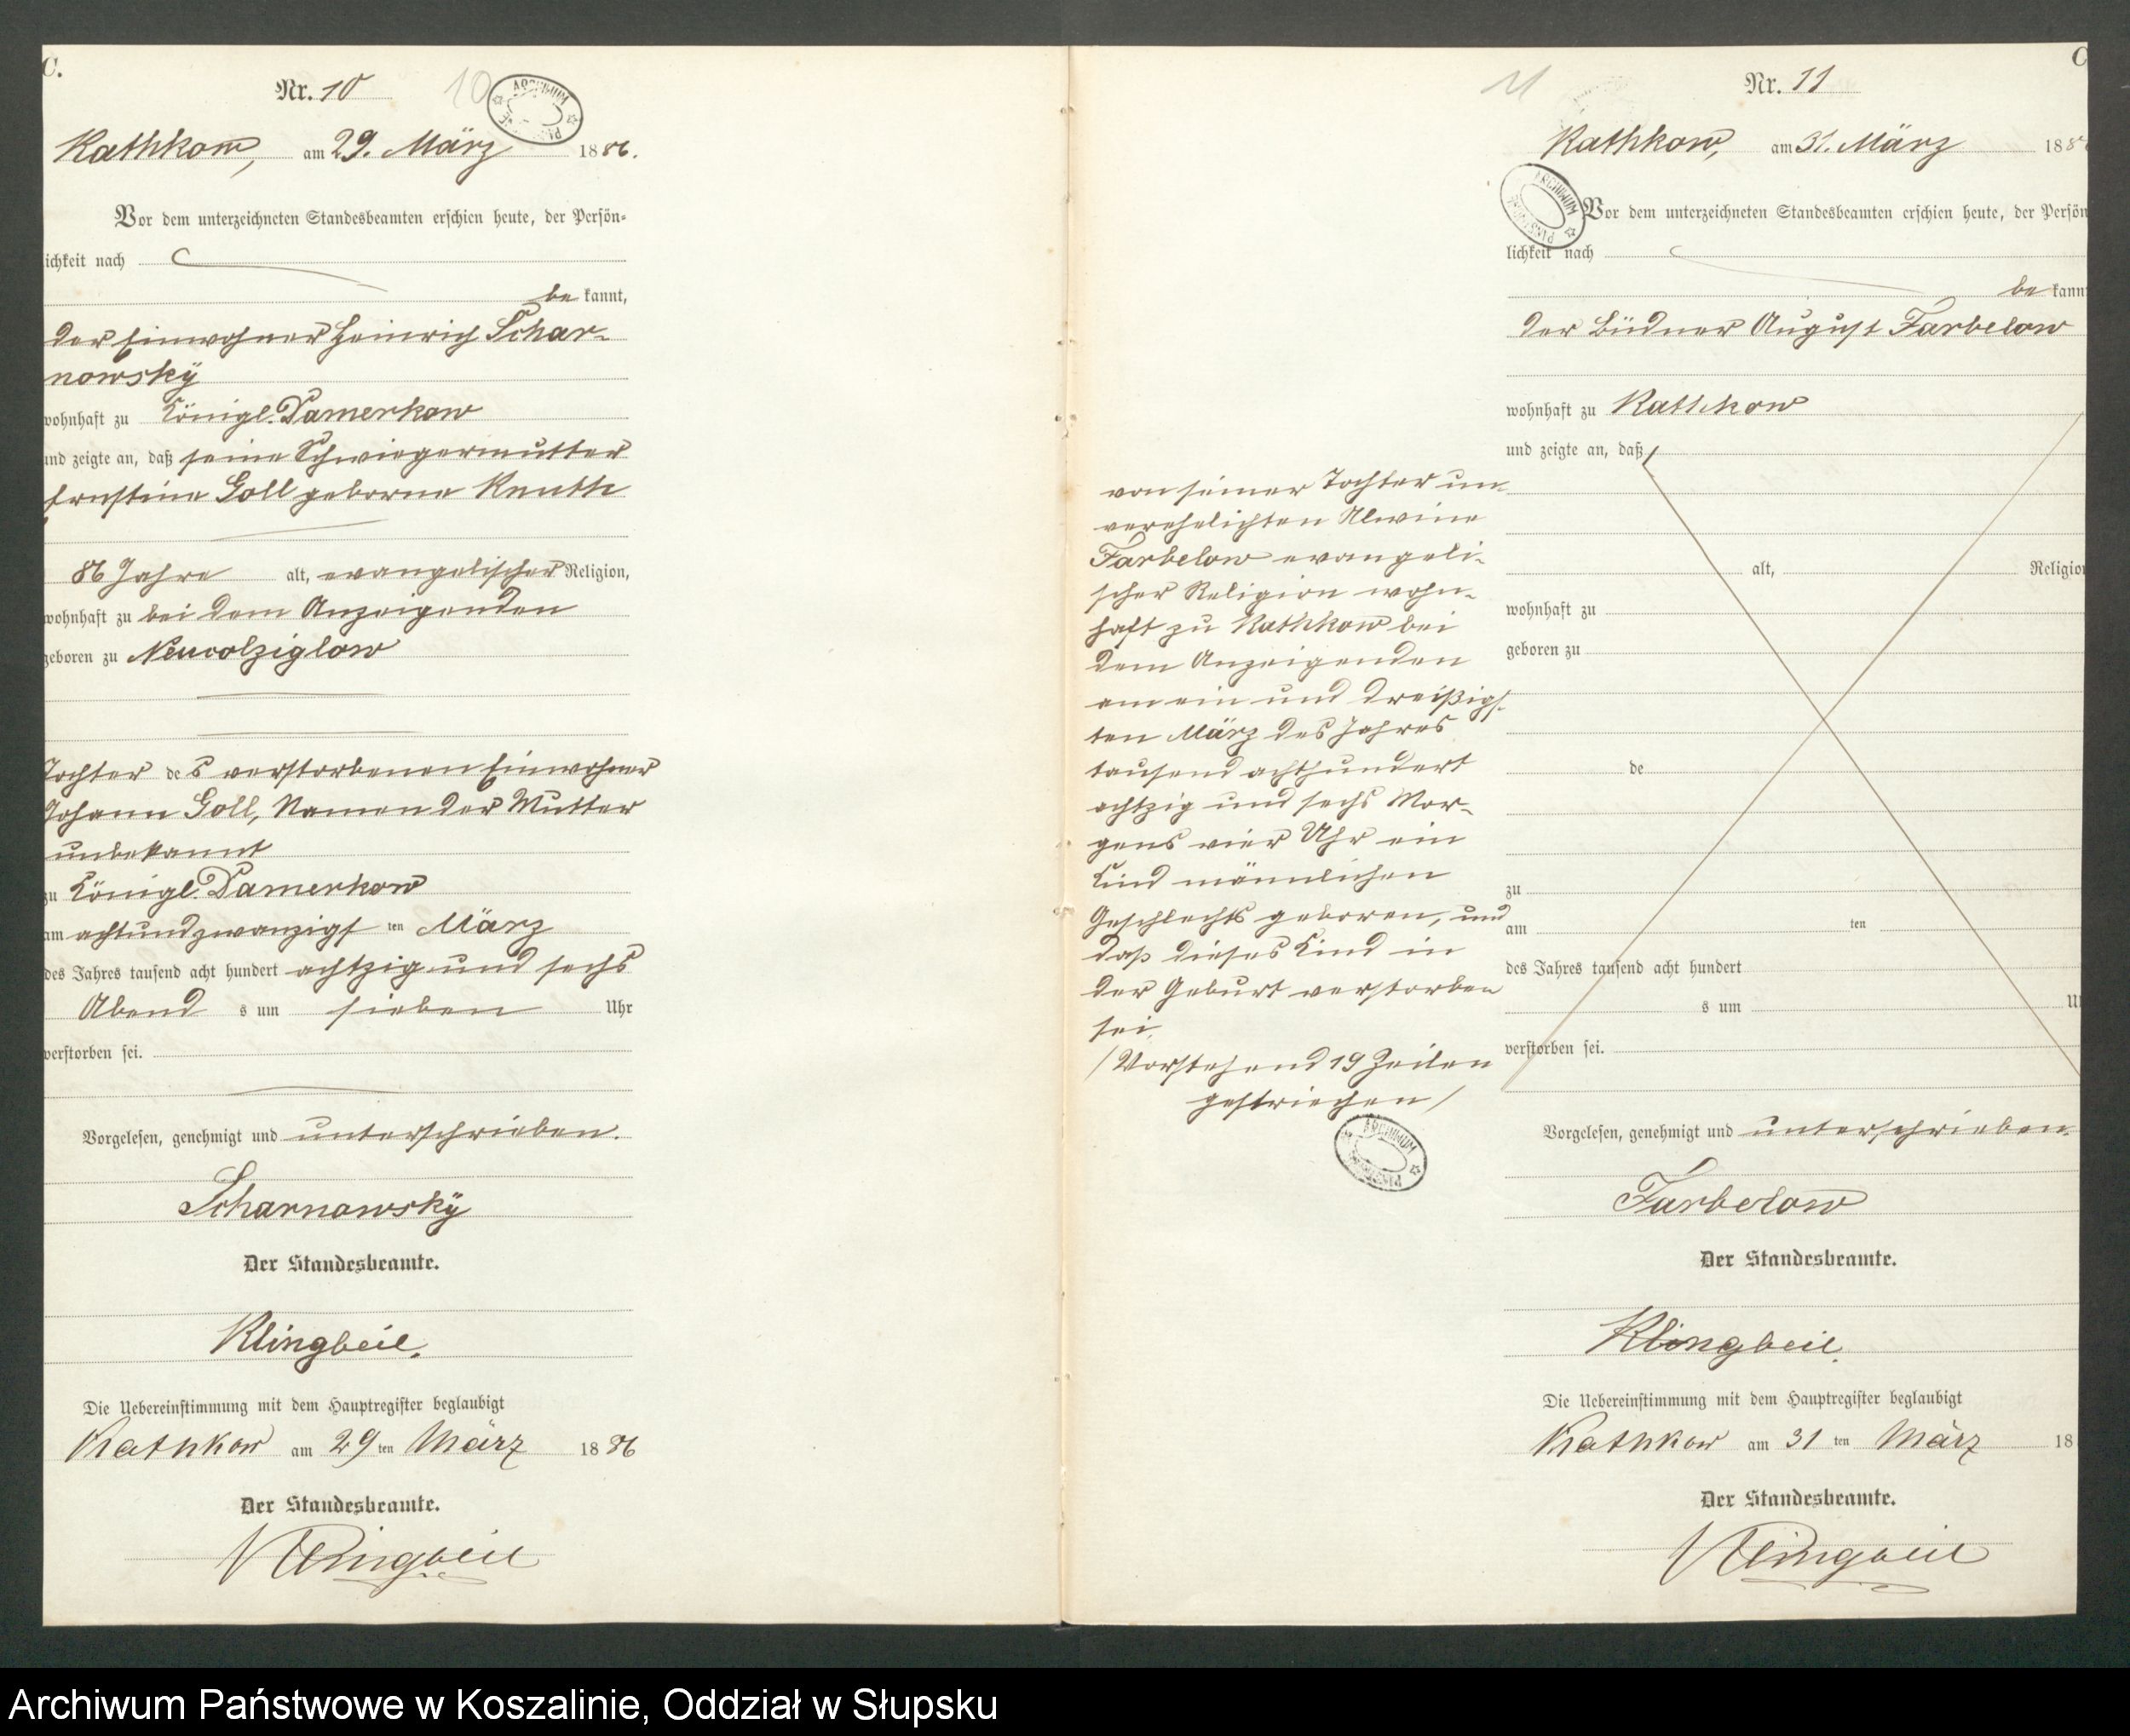 C.
Nr. 10
10
ARCHIWUM
Kathkow, am 29. März 1886.
Vor dem unterzeichneten Standesbeamten erschien heute, der Persön=
ichkeit nach
be kannt,
der Einwohner Heinrich Schar-
nowsky
wohnhaft zu Königl. Damerkow
und zeigte an, daß seine Schwiegermutter
Ernstine Goll geborne Knuth
86 Jahre alt, evangelischer Religion,
wohnhaft zu bei dem Anzeigenden
geboren zu Neucolziglow
Tochter des verstorbenen Einwohner
Johann Goll, Namen der Mutter
unbekannt
zu Königl. Damerkow
am achtundzwanzigsten März
des Jahres tausend acht hundert achtzig und sechs
Abend s um sieben Uhr
verstorben sei.
Vorgelesen, genehmigt und unterschrieben.
Scharnowsky
Der Standesbeamte.
Klingbeil.
Die Uebereinstimmung mit dem Hauptregister beglaubigt
Kathkow am 29ten März 1886
Der Standesbeamte.
Klingbeil
C
11
Nr. 11
Kathkow, am 31. März 188
ARCHIWUM
Vor dem unterzeichneten Standesbeamten erschien heute, der Persön
lichkeit nach
be kann
der Büdner August Farbelow
wohnhaft zu Kathkow
und zeigte an, daß
von seiner Tochter un-
verehelichten Alwine
Farbelow evangeli-
scher Religion wohn-
haft zu Kathkow bei
dem Anzeigenden
am ein und dreißigs-
ten März des Jahres
tausend achthundert
achtzig und sechs Mor-
gens vier Uhr ein
Kind männlichen
Geschlechts geboren, und
daß dieses Kind in
der Geburt verstorben
sei.
/Vorstehend 19 Zeilen
gestrichen/
ARCHIWUM
alt, Religion
wohnhaft zu
geboren zu
de
zu
am ten
des Jahres tausend acht hundert
s um U
verstorben sei.
Vorgelesen, genehmigt und unterschrieben.
Farbelow
Der Standesbeamte.
Klingbeil.
Die Uebereinstimmung mit dem Hauptregister beglaubigt
Kathkow am 31 ten März 18
Der Standesbeamte.
Klingbeil
Archiwum Państwowe w Koszalinie, Oddział w Słupsku